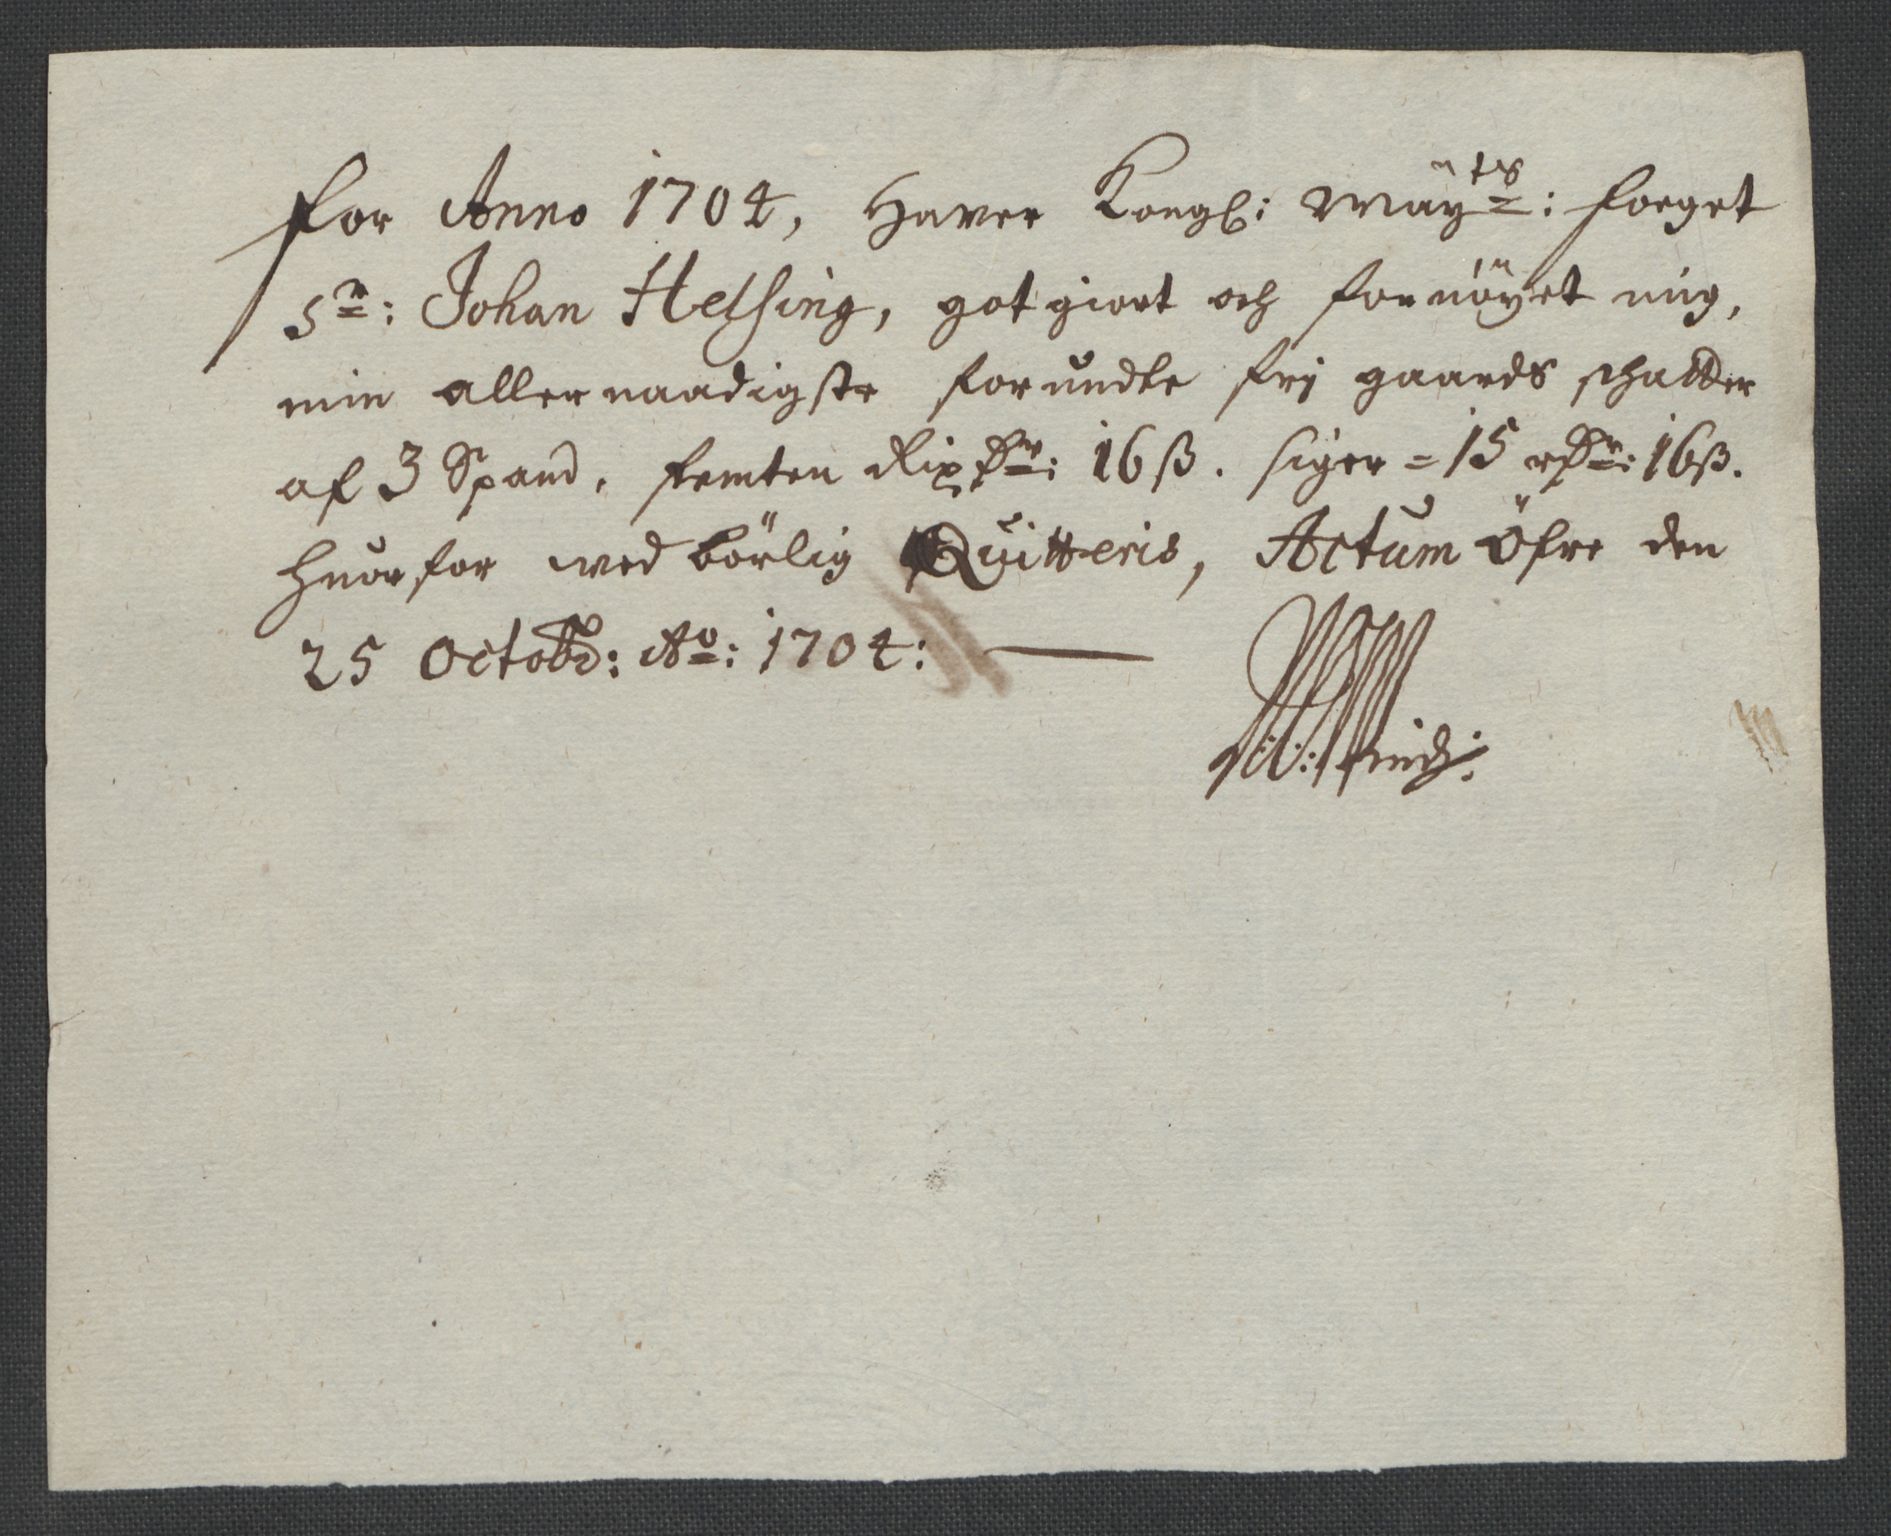 for Anno 1704, Haver Kongl: Mäÿts: foeget
Sr: Johan Helsing, got giort och fornöyet mig,
min allernaadigste forundte frj gaards schatter
af 3 Spand, femten Rixdr: 16 ß. siger = 15 rdr: 16 ß.
huorfor med börlig Quitteris, Actum Öfre den
25 Octobr: Ao: 1704: